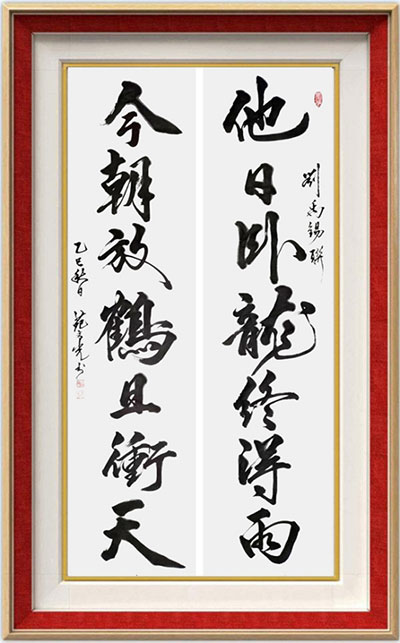 他日卧龍終得雨
劉禹錫聯
今朝放鶴且衝天
乙巳秋日